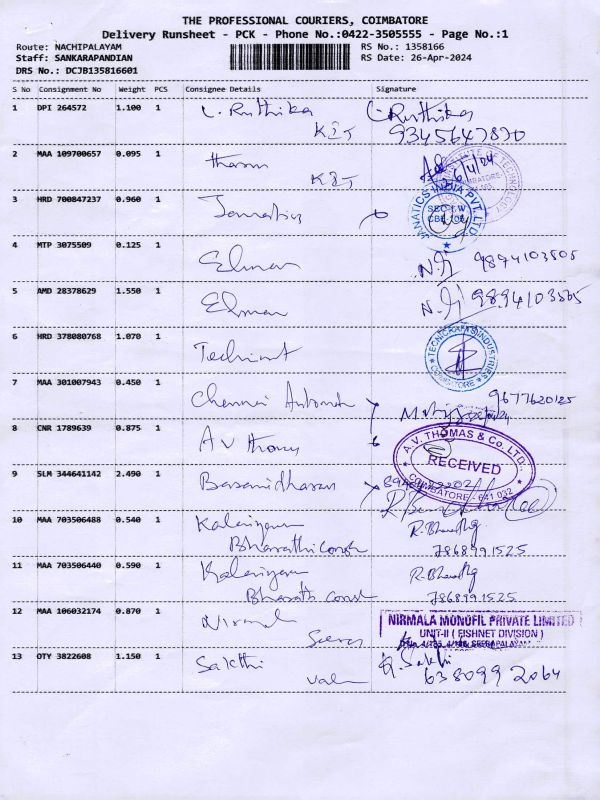 THE PROFESSIONAL COURIERS, COIMBATORE
Delivery Runsheet - PCK - Phone No.:0422-3505555 - Page No.:1
Route: NACHIPALAYAM
Staff: SANKARAPANDIAN
DRS No.: DCJB135816601
RS No.: 1358166
RS Date: 26-Apr-2024
S No Consignment No Weight PCS Consignee Details Signature
1 DPI 264572 1.100 1 Ruthika Ruthika
9345647830
2 MAA 109700657 0.095 1 Tharun
26/4/24
3 HRD 700847237 0.960 1
JANATICS INDIA PVT.LTD
4 MTP 3075509 0.125 1 Elman 9894103505
5 AMD 28378629 1.550 1 Elman 9894103505
6 HRD 378080768 1.070 1
TECNICRAFTS INDUSTRIES
COIMBATORE
7 MAA 301007943 0.450 1 Chennai 9677620125
8 CNR 1789639 0.875 1 A V Thomas
A.V. THOMAS & Co. LTD.,
RECEIVED
COIMBATORE - 641 032
9 SLM 344641142 2.490 1 Basanidharan
10 MAA 703506488 0.540 1 Kalaiyam R. Bharathy
Bharathi const 7868991525
11 MAA 703506440 0.590 1 Kalaiyam R. Bharathy
Bharathi const 7868991525
12 MAA 106032174 0.870 1 Nirmal
NIRMALA MONOFIL PRIVATE LIMITED
UNIT-II ( FISHNET DIVISION )
13 OTY 3822608 1.150 1 Sakthi Sakthi
6380992064